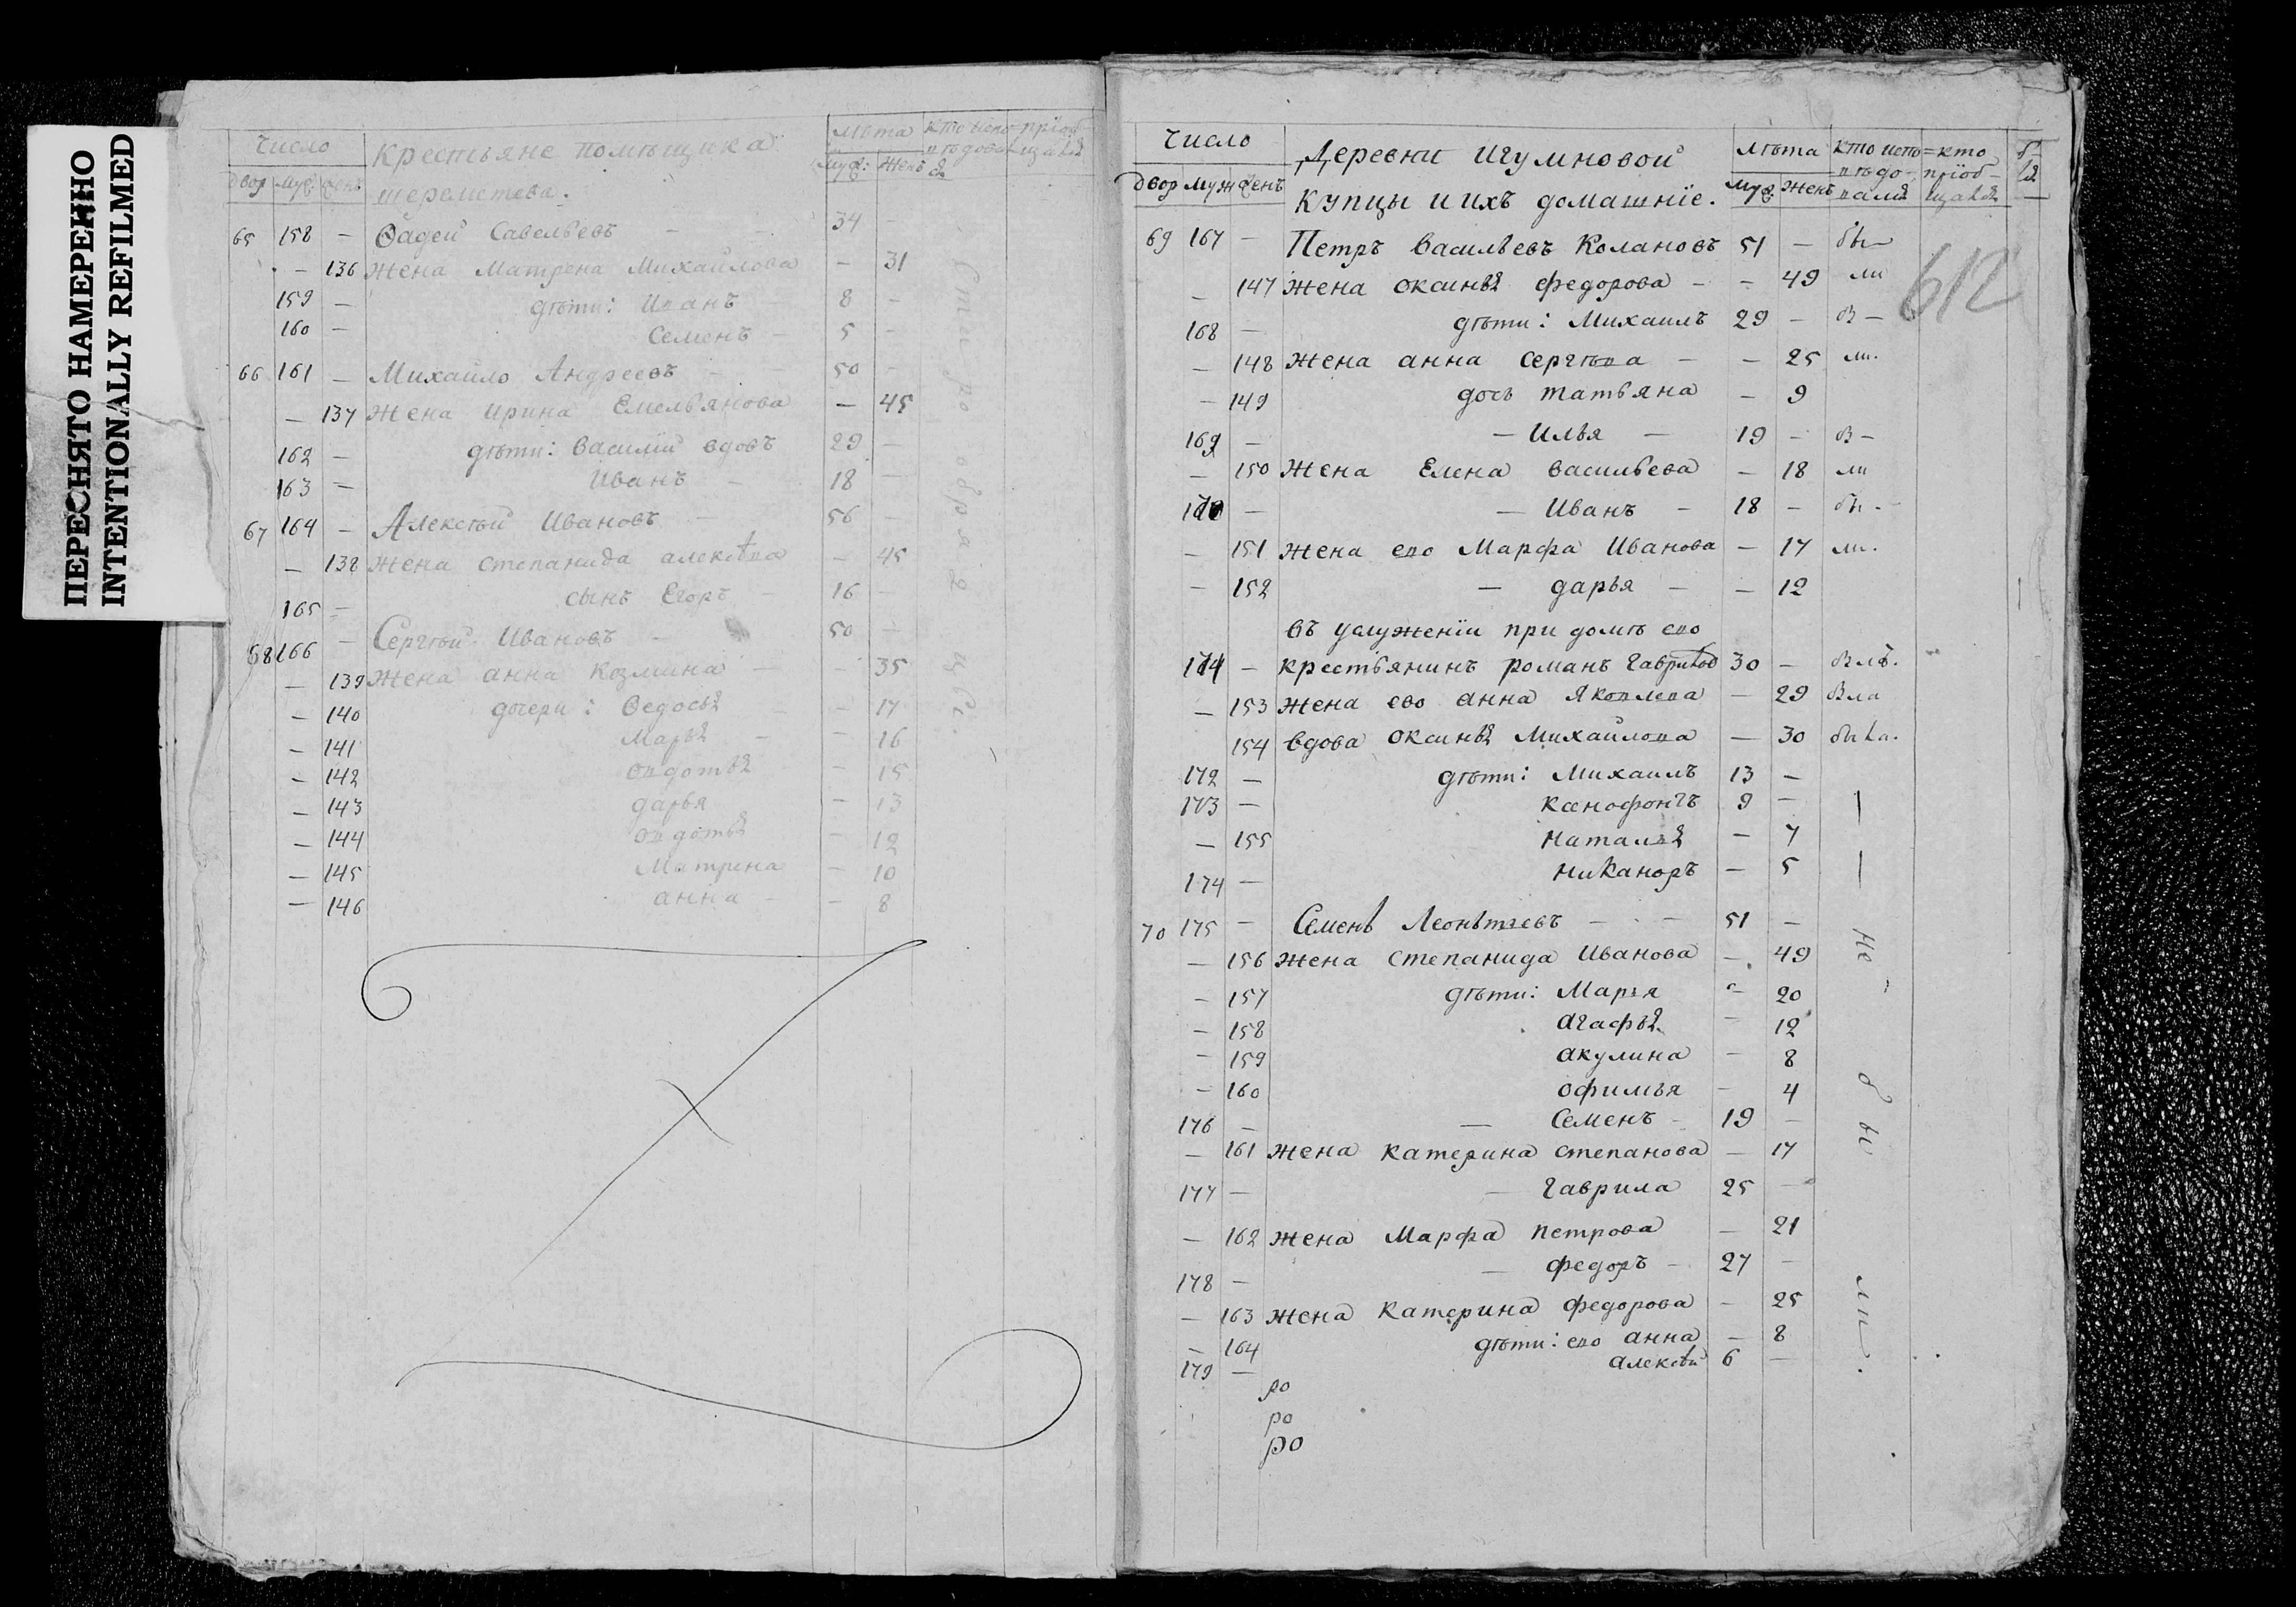 ПЕРЕСНЯТО НАМЕРЕННО
INTENTIONALLY REFILMED
Число Крестьяне помѣщика лѣта кто испо= пріоб
двор муж женъ шереметева. муж: женъ
65 158 — Ѳадей Савельевъ — 34 —
— 136 жена Матрена Михайлова — 31
159 — дѣти: Иванъ 8 —
160 — Семенъ 5 —
66 161 — Михайло Андреевъ — 50 —
— 137 жена Ирина Емельянова — 45
162 — дѣти: василий вдовъ 29 —
163 — Иванъ — 18 —
67 164 — Алексѣй Ивановъ — 56 —
— 138 жена степанида алексѣва — 45
165 — сынъ Егоръ — 16 —
68 166 — Сергѣй Ивановъ — 50 —
— 139 жена анна козмина — — 35
— 140 дочери: Ѳедосья — 17
— 141 Марья — — 16
— 142 овдотья — 15
— 143 дарья — 13
— 144 овдотья — 12
— 145 Матрена — 10
— 146 анна — — 8
Число Деревни игумновой лѣта кто испо= кто
двор муж женъ купцы и ихъ домашніе. муж женъ пріоб-
612
69 167 — Петръ васильевъ Колановъ 51 — бы—
— 147 жена оксинья федорова — — 49 ли
168 — дѣти: Михаилъ 29 — б —
— 148 жена анна сергѣва — — 25 ли.
— 149 дочь татьяна — 9
169 — — Илья — 19 — б —
— 150 жена Елена васильева — 18 ли
170 — — Иванъ — 18 — бы. —
— 151 жена ево Марфа Иванова — 17 ли.
— 152 — дарья — — 12
въ услуженіи при домѣ ево
171 — крестьянинъ романъ гаврилов 30 — былъ.
— 153 жена ево анна яковлева — 29 была
154 вдова оксинья Михайлова — 30 была.
172 — дѣти: Михаилъ 13 —
173 — ксенофонтъ 9 —
— 155 наталья — 7
174 — никаноръ — 5
70 175 — Семенъ Леонтьевъ — — 51 —
— 156 жена степанида Иванова — 49
— 157 дѣти: Марья — 20
— 158 агафья — 12
— 159 акулина — 8
— 160 офимья — 4
176 — — Семенъ — 19 —
— 161 жена катерина степанова — 17
177 — — гаврила 25 —
— 162 жена Марфа петрова — 21
178 — — федоръ — 27 —
— 163 жена катерина федорова — 25
— 164 дѣти: ево анна — 8
179 — алексѣй 6 —
не бы ли.
ро
ро
ро